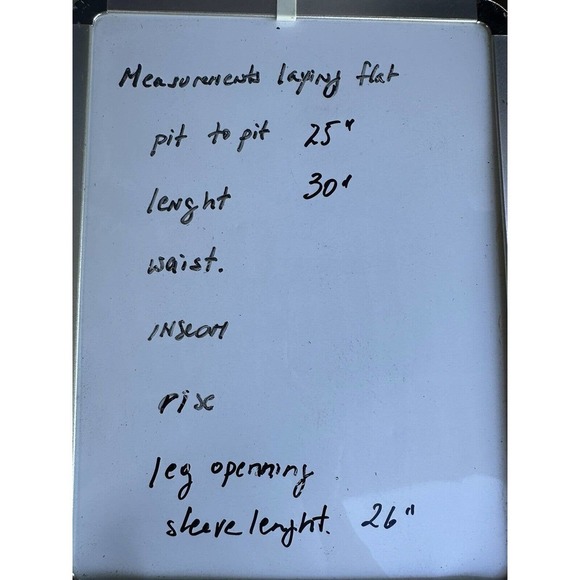 Measurements laying flat
pit to pit 25"
lenght 30"
waist.
inseam
rise
leg openning
sleeve lenght. 26"